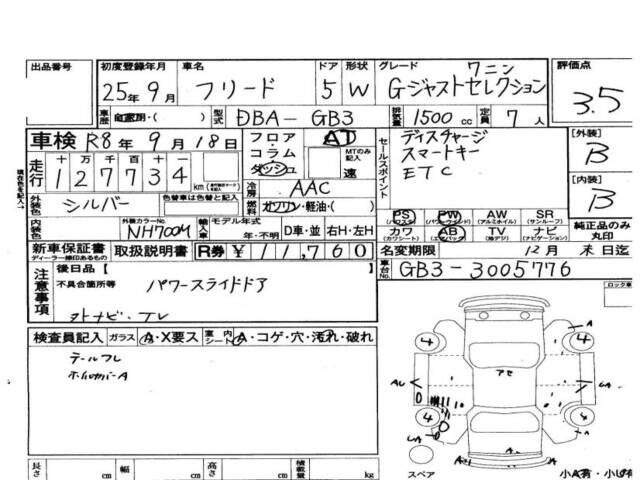 出品番号 初度登録年月 車名 ドア 形状 グレード 評価点
25年 9月 フリード 5 W 7ニン Gジャストセレクション 3.5
車歴 自家用・( ) 型式 DBA-GB3 排気量 1500 cc 定員 7人
車検 R8年 9月 18日 フロア・コラム ダッシュ AT MTのみ記入 速 セールスポイント ディスチャージ [外装] B
スマートキー
ETC
走行 十 万 千 百 十 一
127734 km 冷房 AAC [内装] B
外装色 シルバー 色替車は色替え前色 燃料 ガソリン・軽油・( )
PS (パワステ) PW (パワーウインド) AW (アルミホイル) SR (サンルーフ) 純正品のみ丸印
内装色 外装カラーNo. NH700M 輸入車 モデル年式 年・不明 D車・並 右H・左H カワ (カワシート) AB (エアバック) TV (純デジ) ナビ (ナビゲーション)
新車保証書 ディーラー様印あるもの 取扱説明書 R券 ¥11,760 名変期限 12月 末日迄
車台No. GB3-3005776
注意事項 後日品 [ ]
不具合箇所等 パワースライドドア
外ナビ・TV
ロック車
検査員記入 ガラス A・X要ス 車室内 シート A・コゲ・穴・汚れ・破れ
テールフレ
ホイルカバーA
4 4
アセ
4 4
A
スペア
長さ cm 幅 cm 高さ cm 積載量 kg
小A有・小U有